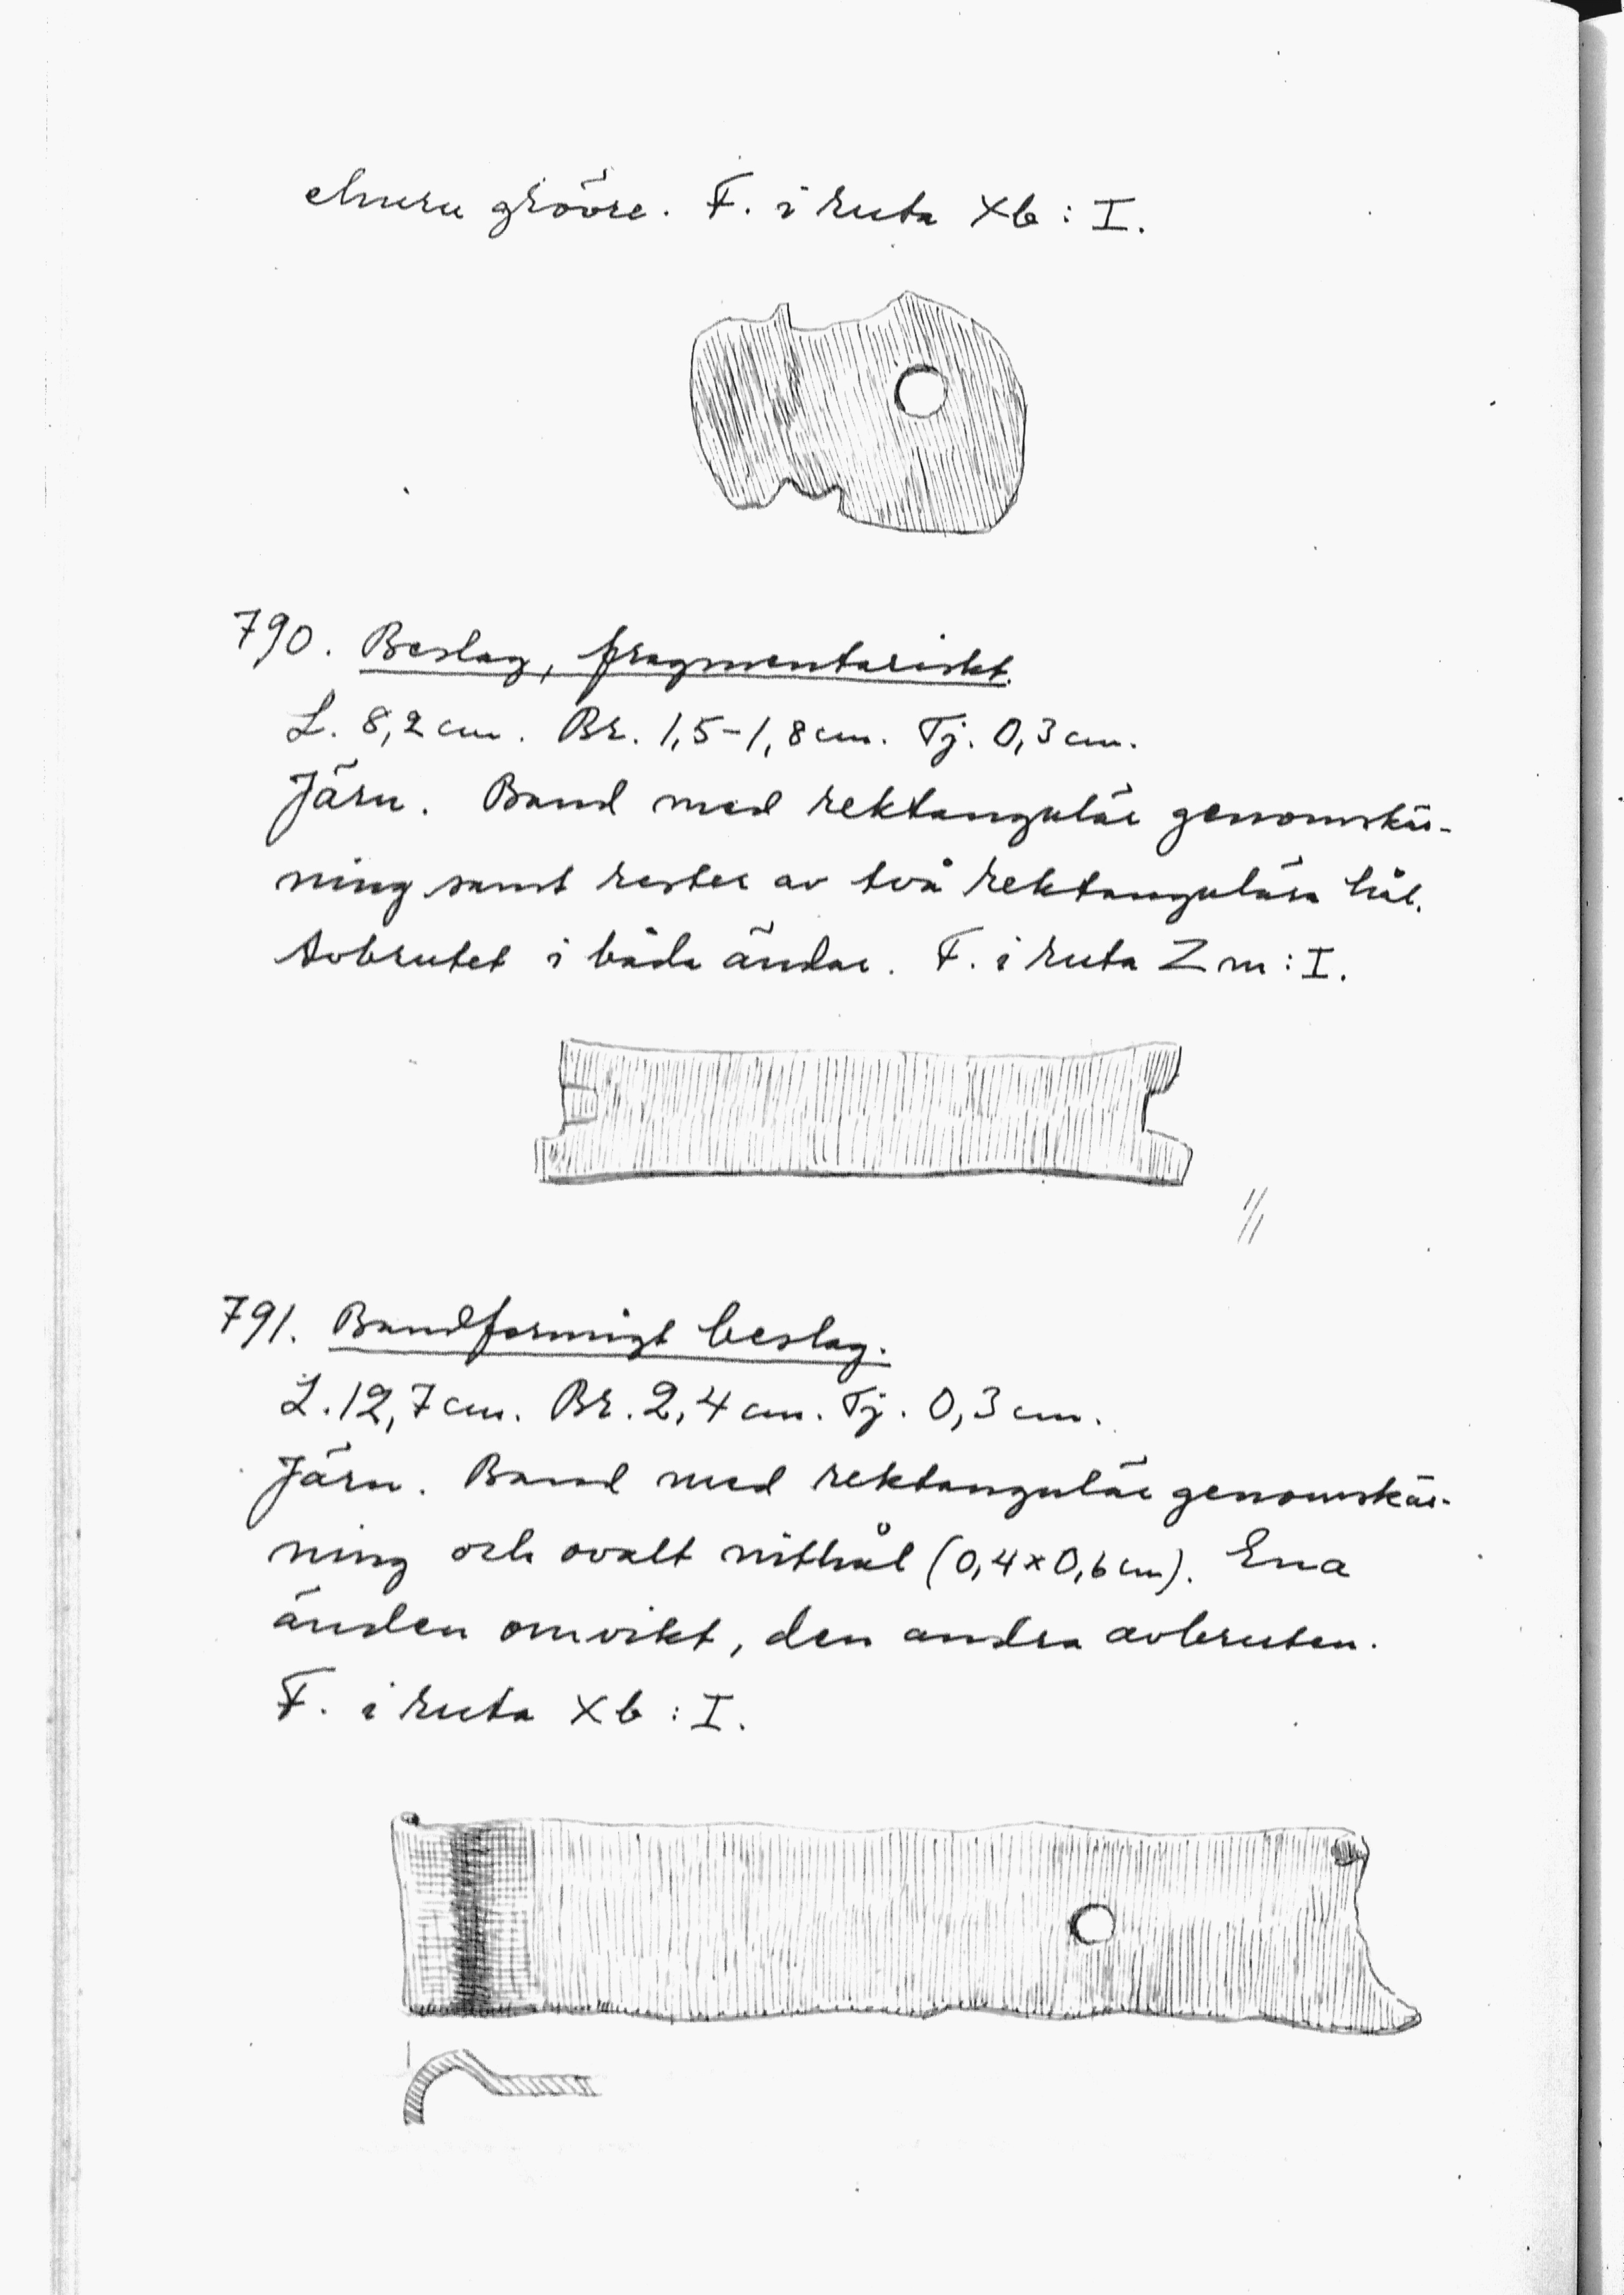 ehuru grövre. F. i ruta Xb : I.
790. Beslag, fragmentariskt.
L. 8,2 cm. Br. 1,5-1,8 cm. Tj. 0,3 cm.
Järn. Band med rektangulär genomskär-
ning samt rester av två rektangulära hål.
Avbrutet i båda ändar. F. i ruta Zm : I.
1/1
791. Bandformigt beslag.
L. 12,7 cm. Br. 2,4 cm. Tj. 0,3 cm.
Järn. Band med rektangulär genomskär-
ning och ovalt nithål (0,4 x 0,6 cm). Ena
änden omvikt, den andra avbruten.
F. i ruta Xb : I.